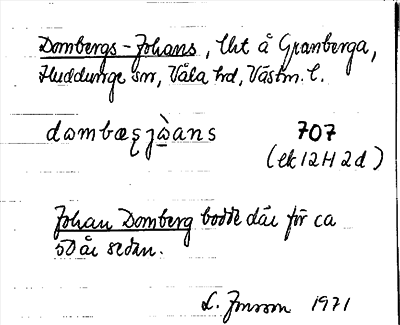 Dombergs-Johans, lht å Granberga,
Huddunge sn, Våla hd, Västm. l.
dωmbæʂjὼans 707
(ek 12H 2d)
Johan Domberg bodde där för ca
50 år sedan.
L. Jonsson 1971